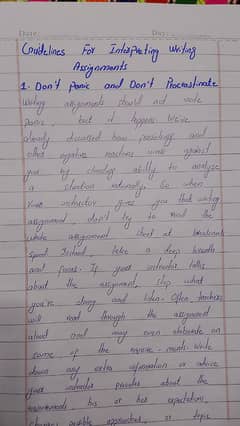 Date: Day:
Guidelines For Interpreting Writing
Assignments
1. Don't Panic and Don't Procrastinate
Writing assignments should not make
panic, but it happens. We've
already discussed how and
other negative reactions work against
you by clouding ability to analyze
a situation rationally. So when
your instructor gives you that writing
assignment, don't try to read the
whole assignment sheet at
speed. Instead, take a deep breath
and focus. If your instructor talks
about the assignment, stop what
you're doing and listen. Often, teachers
will read through the assignment
aloud and may even elaborate on
some of the require-ments. Write
down any extra information or advice
your instructor provides about the
requirements his or her expectations,
changes, possible approaches, or topic